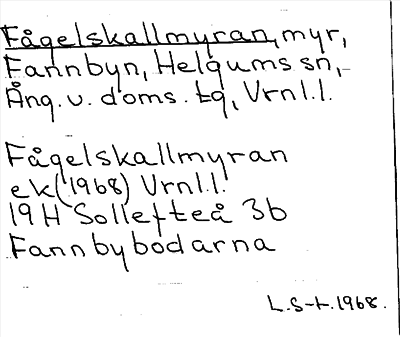 Fågelskallmyran, myr,
Fannbyn, Helgums sn,
Ång. v. doms. tg, Vrnl.l.
Fågelskallmyran
ek (1968) Vrnl.l.
19H Sollefteå 3b
Fannbybodarna
L.S-t. 1968.